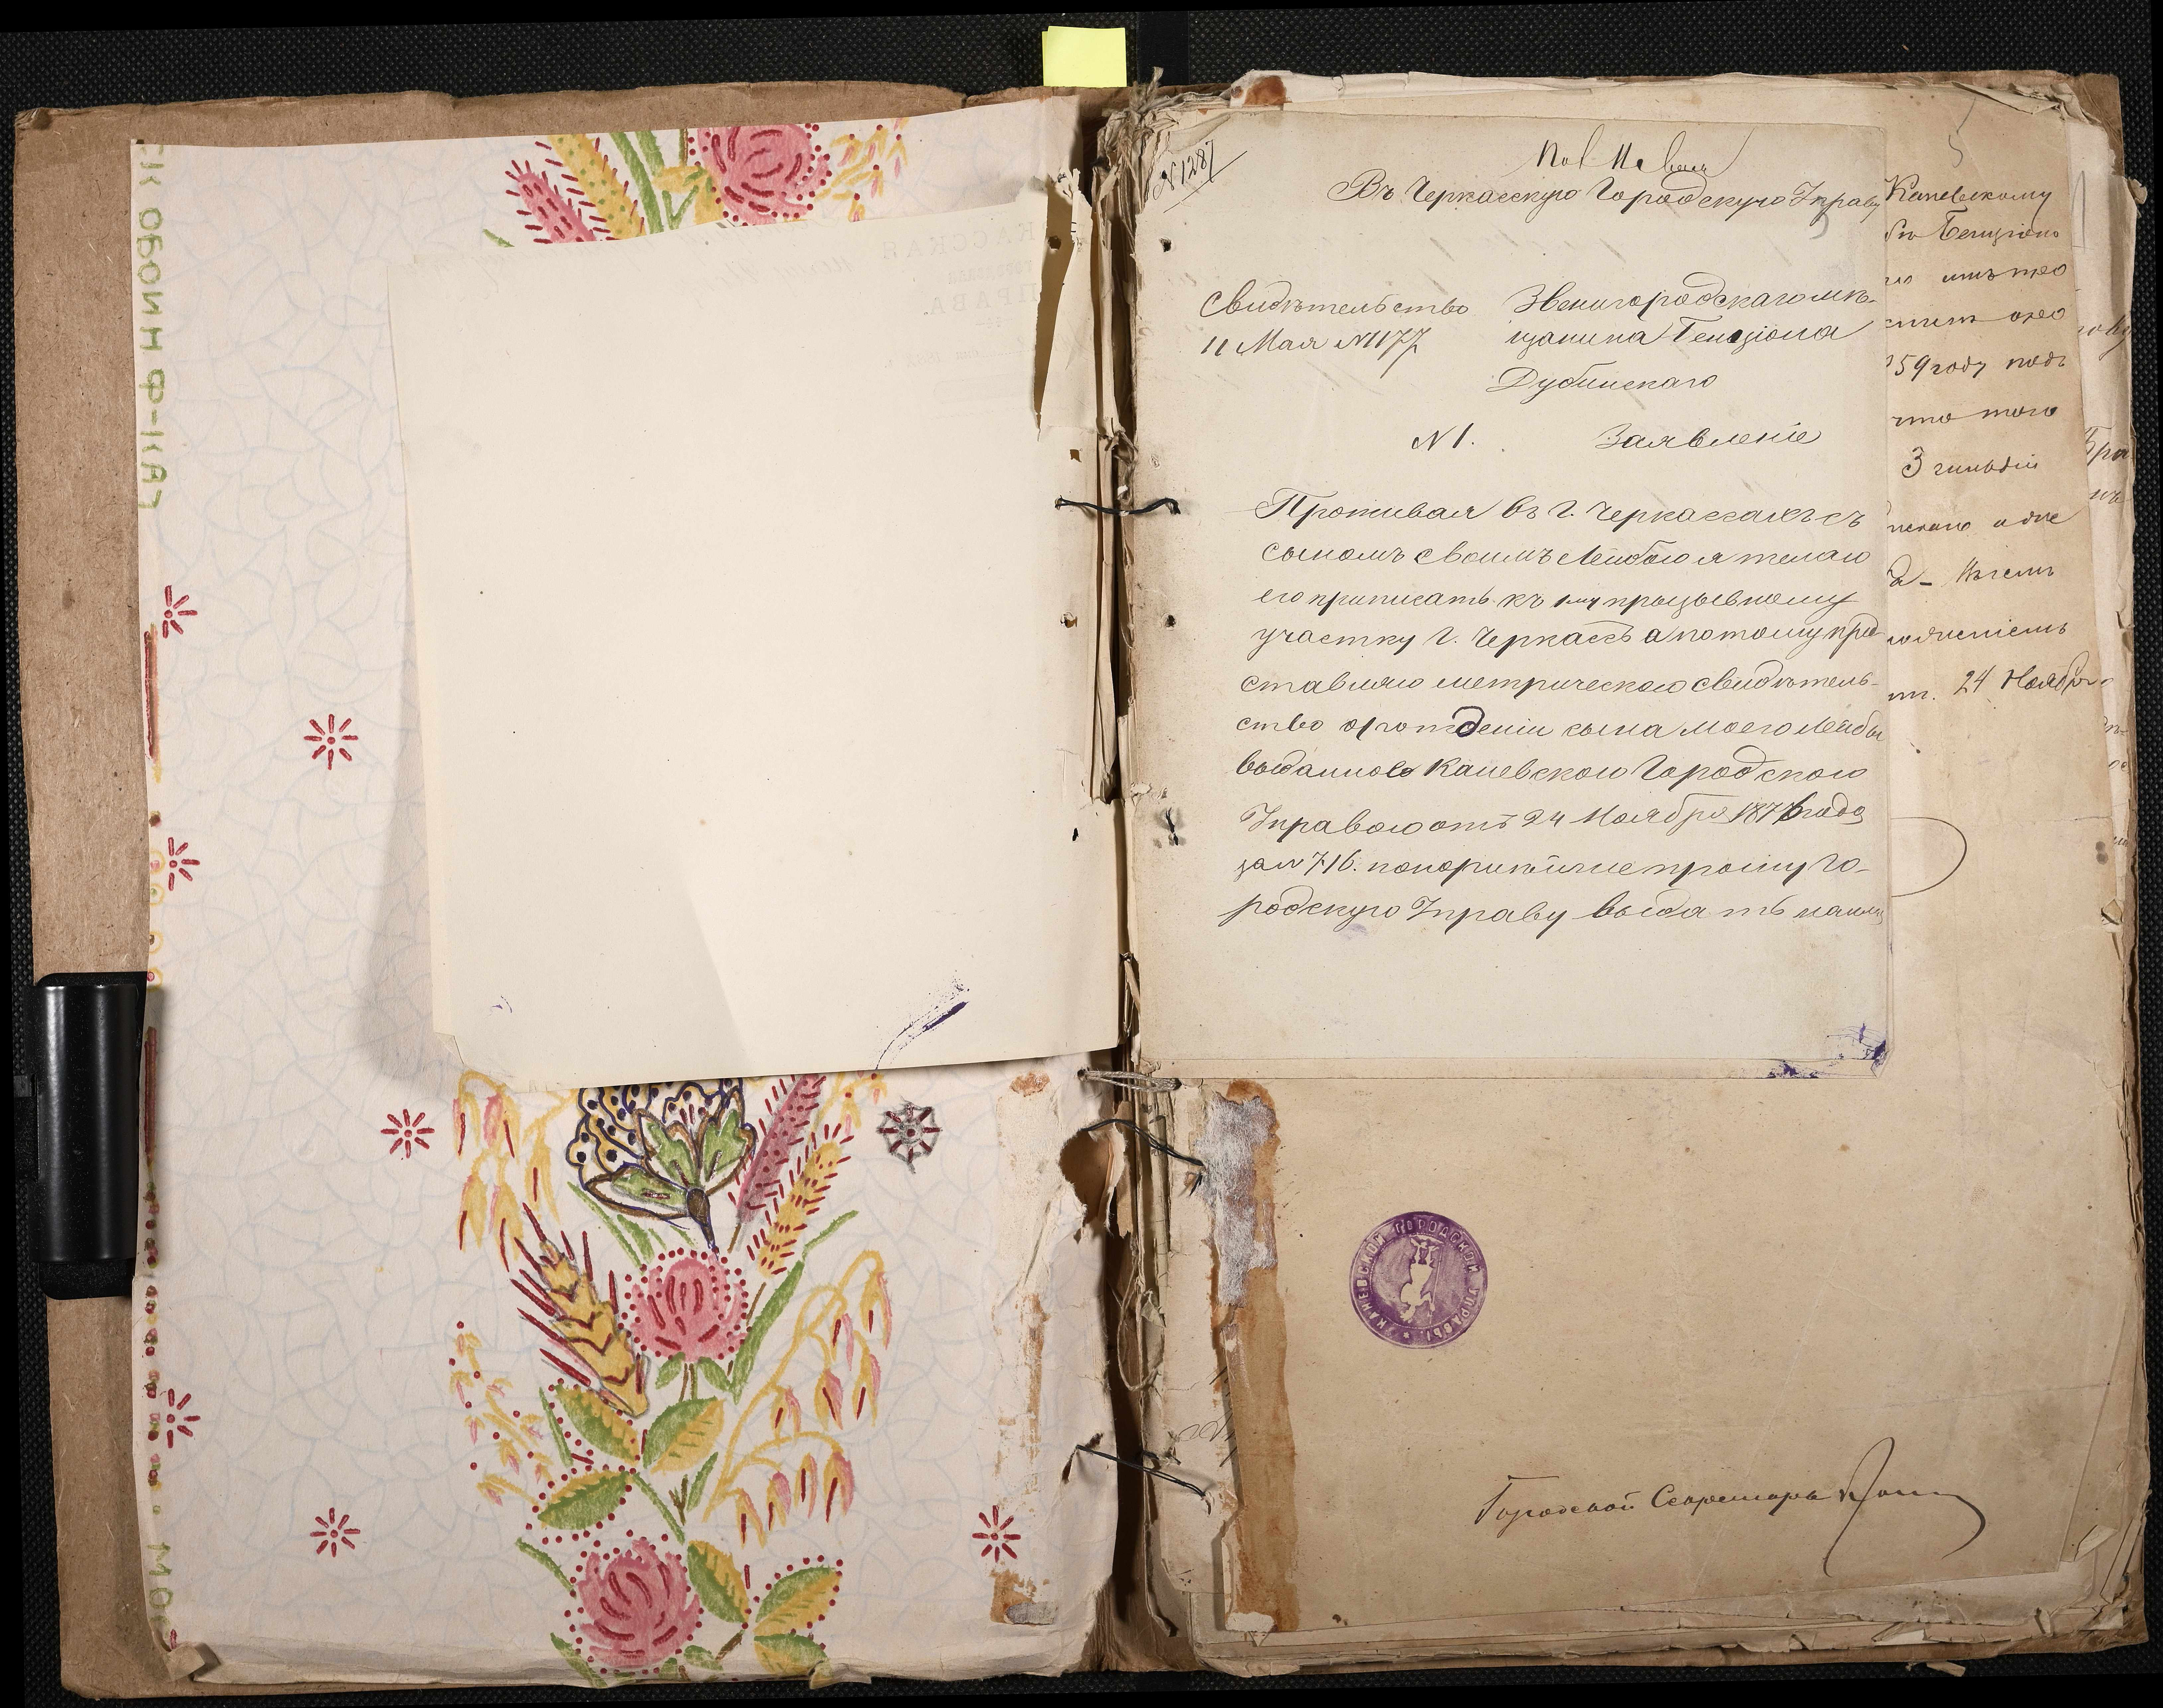 N 1287
Въ Черкасскую Городскую Управу
Свидѣтельство
11 Мая N 1177
Звенигородскаго мѣ-
щанина Бенціона
Дубинскаго
N 1.
Заявленіе
Проживая въ г. Черкассахъ съ
сыномъ своимъ Лейбою я желаю
его приписать къ 1му прызывному
участку г. Черкассъ а потому пред
ставляю метрическою свидѣтель-
ство о рождении сына моего Лейбы
выданное Каневскою Городскою
Управою отъ 24 Ноября 1876 года
за N 716. покорнѣйше прошу Го-
родскую Управу выдать
Каневскому
Бенціона
59 году подъ
что того
3 гильдіи
24 Ноября
КАНЕВСКОЙ ГОРОДСКОЙ УПРАВЫ
Городской Секретарь
СК ОБОЙН Ф-ІКА
МОС